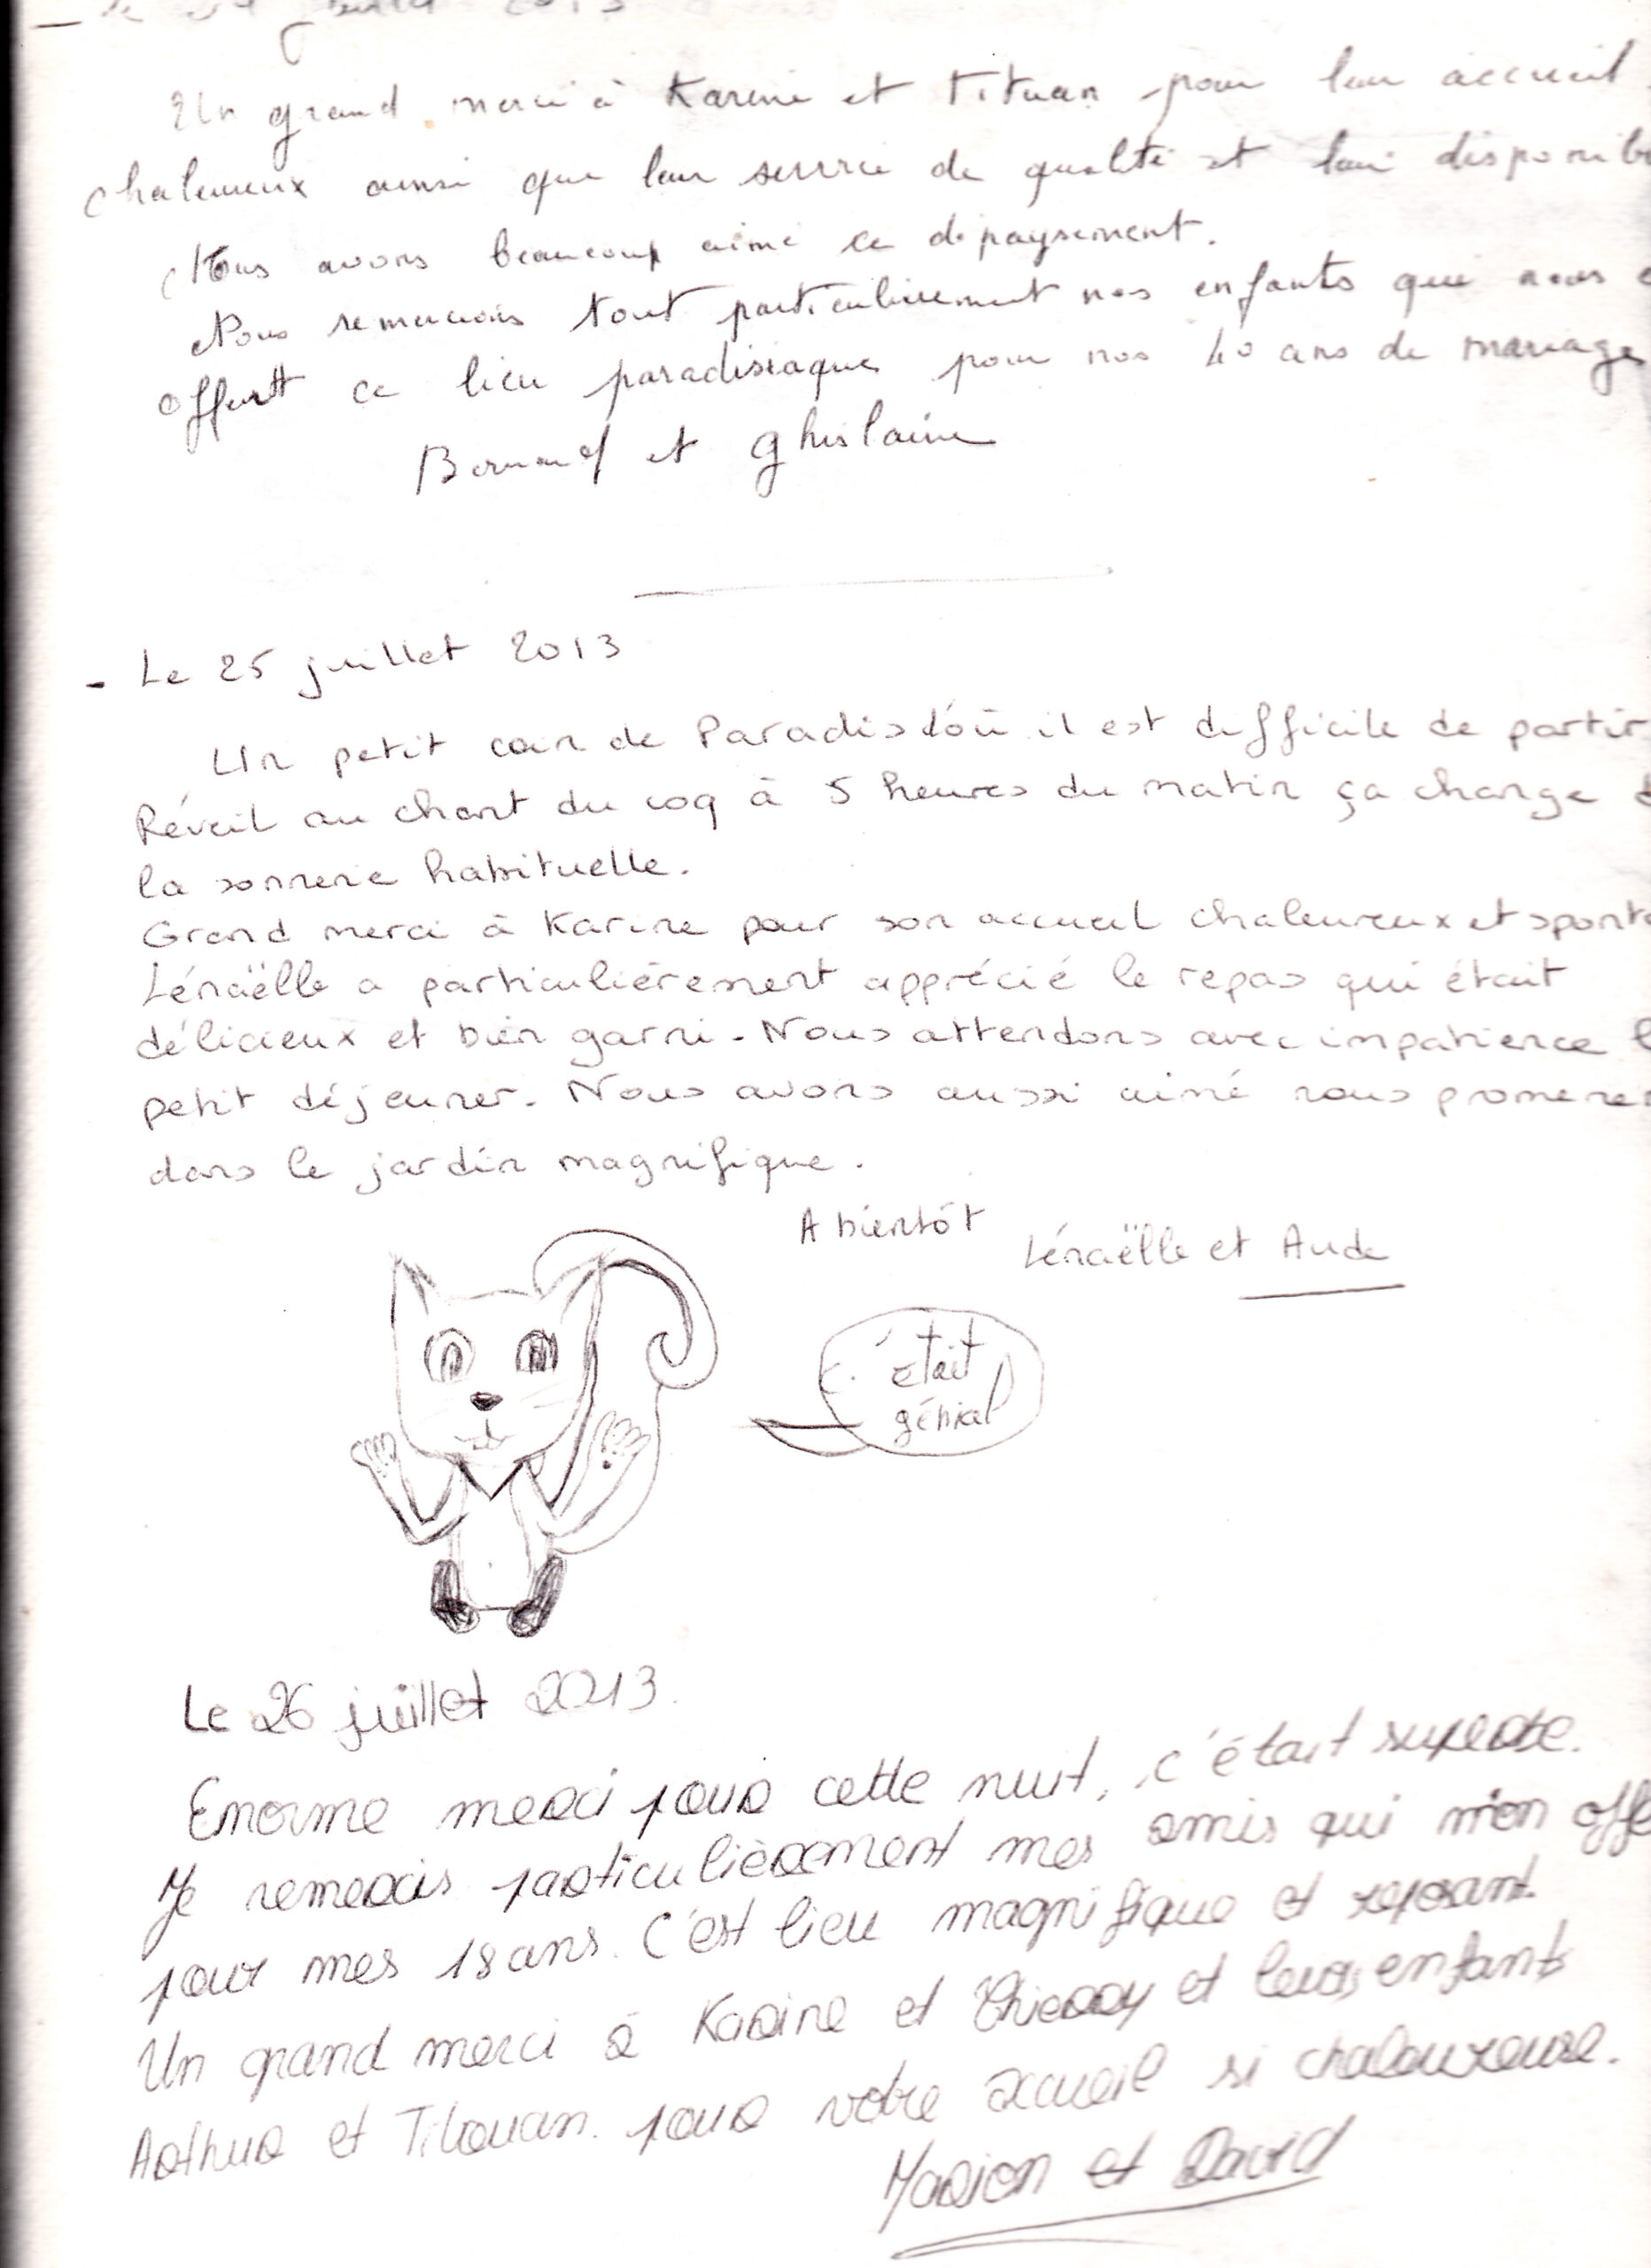 juillet 2013
Un grand merci à Karine et Tituan pour leur accueil
chaleureux ainsi que leur service de qualité et leur disponib
Nous avons beaucoup aimé ce dépaysement.
Nous remercions tout particulièrement nos enfants qui nous
offert ce lieu paradisiaque pour nos 40 ans de mariage
Bernard et Ghislaine
- Le 25 juillet 2013
Un petit coin de Paradis d'où il est difficile de partir
Réveil au chant du coq à 5 heures du matin ça change d
la sonnerie habituelle.
Grand merci à Karine pour son accueil chaleureux et sponta
Lénaëlle a particulièrement apprécié le repas qui était
délicieux et bien garni. Nous attendons avec impatience l
petit déjeuner. Nous avons aussi aimé nous promener
dans le jardin magnifique.
A bientôt
Lénaëlle et Aude
C'était
génial
Le 26 juillet 2013.
Enorme merci pour cette nuit, c'était superbe.
Je remercis particulièrement mes amis qui m'on offe
pour mes 18 ans. C'est lieu magnifique et reposant.
Un grand merci à Karine et Thierry et leurs enfants
Arthur et Titouan. pour votre accueil si chaleureuse.
Marion et David